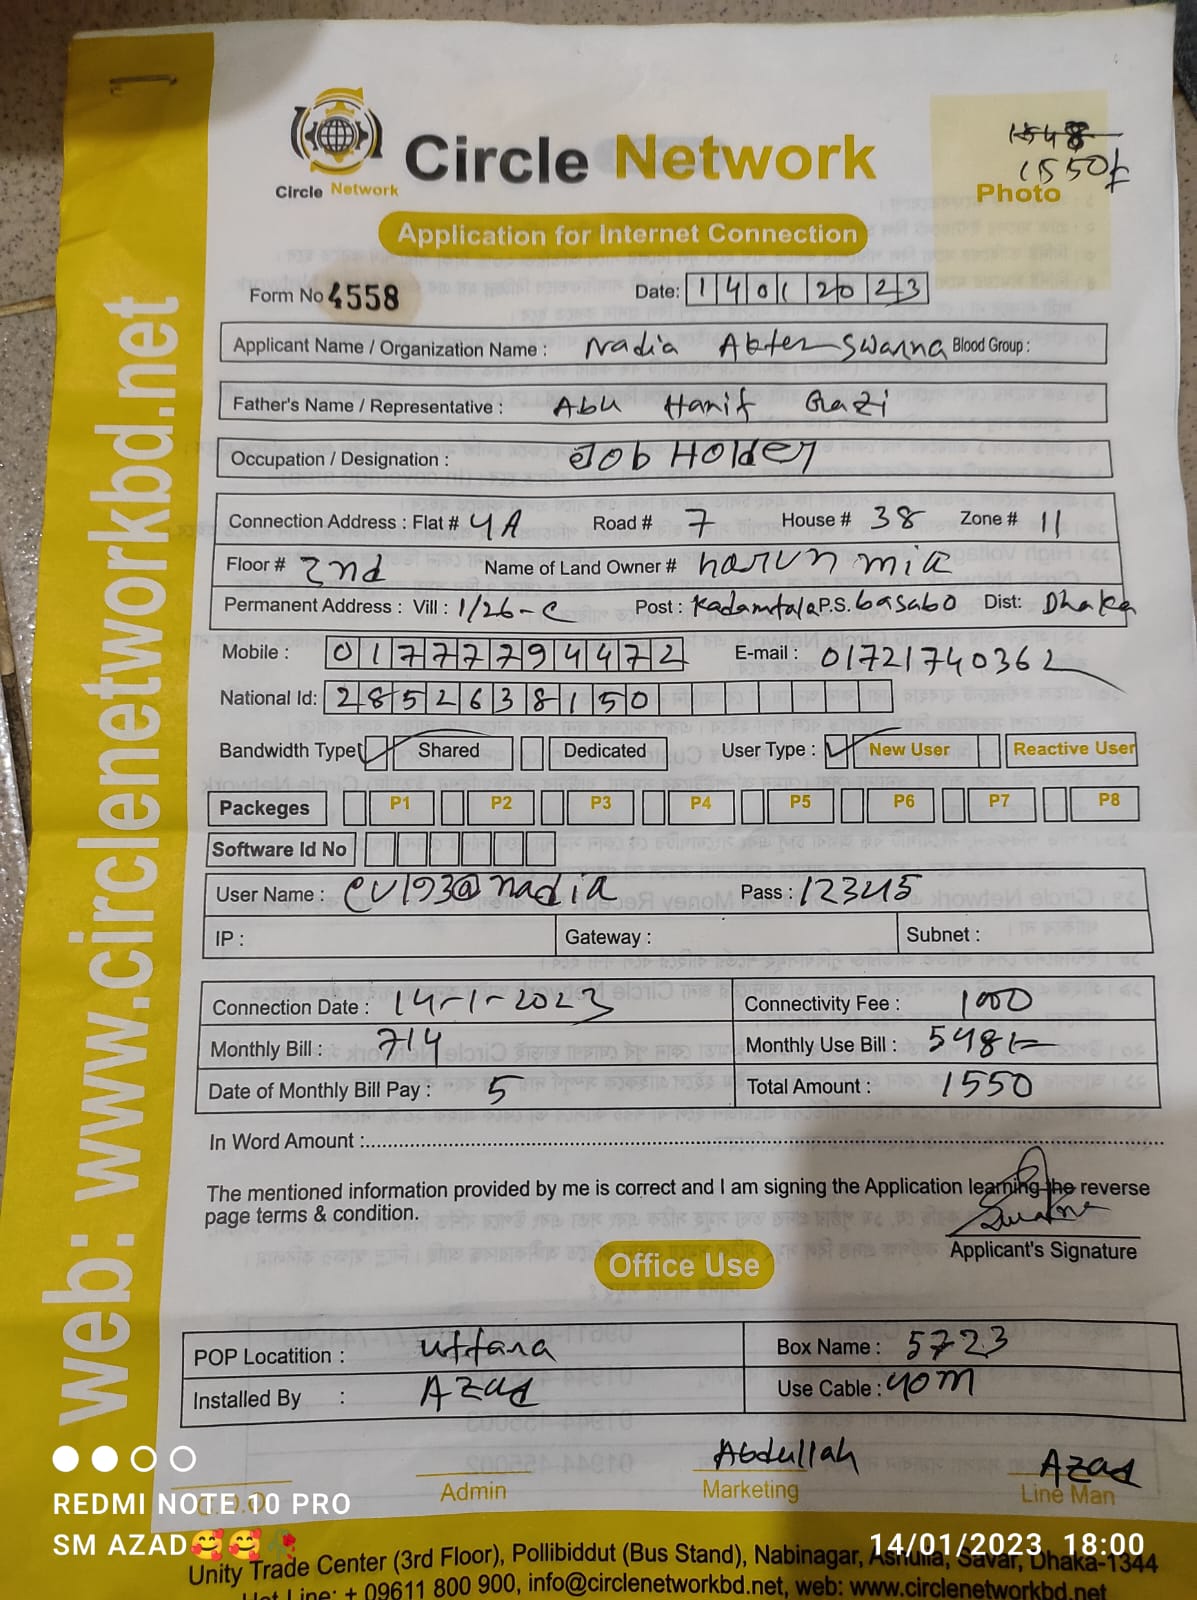 web: www.circlenetworkbd.net
Circle Network
Circle Network
1548
1550/-
Photo
Application for Internet Connection
Form No 4558 Date: 14012023
Applicant Name / Organization Name : Nadia Akter Swarna Blood Group :
Father's Name / Representative : Abu Hanif Gazi
Occupation / Designation : Job Holder
Connection Address : Flat # 4A Road # 7 House # 38 Zone # 11
Floor # 2nd Name of Land Owner # harun mia
Permanent Address : Vill : 1/26-C Post : Kadamtala P.S. basabo Dist: Dhaka
Mobile : 01777794472 E-mail : 01721740362
National Id: 2852638150
Bandwidth Type Shared Dedicated User Type : New User Reactive User
Packeges P1 P2 P3 P4 P5 P6 P7 P8
Software Id No
User Name : CU193@nadia Pass : 12345
IP : Gateway : Subnet :
Connection Date : 14-1-2023 Connectivity Fee : 1000
Monthly Bill : 714 Monthly Use Bill : 548/=
Date of Monthly Bill Pay : 5 Total Amount : 1550
In Word Amount :
The mentioned information provided by me is correct and I am signing the Application learning the reverse
page terms & condition.
Swarna
Applicant's Signature
Office Use
POP Locatition : uttara Box Name : 5723
Installed By : Azad Use Cable : 40m
Abdullah Azad
Admin Marketing Line Man
REDMI NOTE 10 PRO
SM AZAD🥰🥰🥀 14/01/2023 18:00
Unity Trade Center (3rd Floor), Pollibiddut (Bus Stand), Nabinagar, Ashulia, Savar, Dhaka-1344
Hot Line: + 09611 800 900, info@circlenetworkbd.net, web: www.circlenetworkbd.net